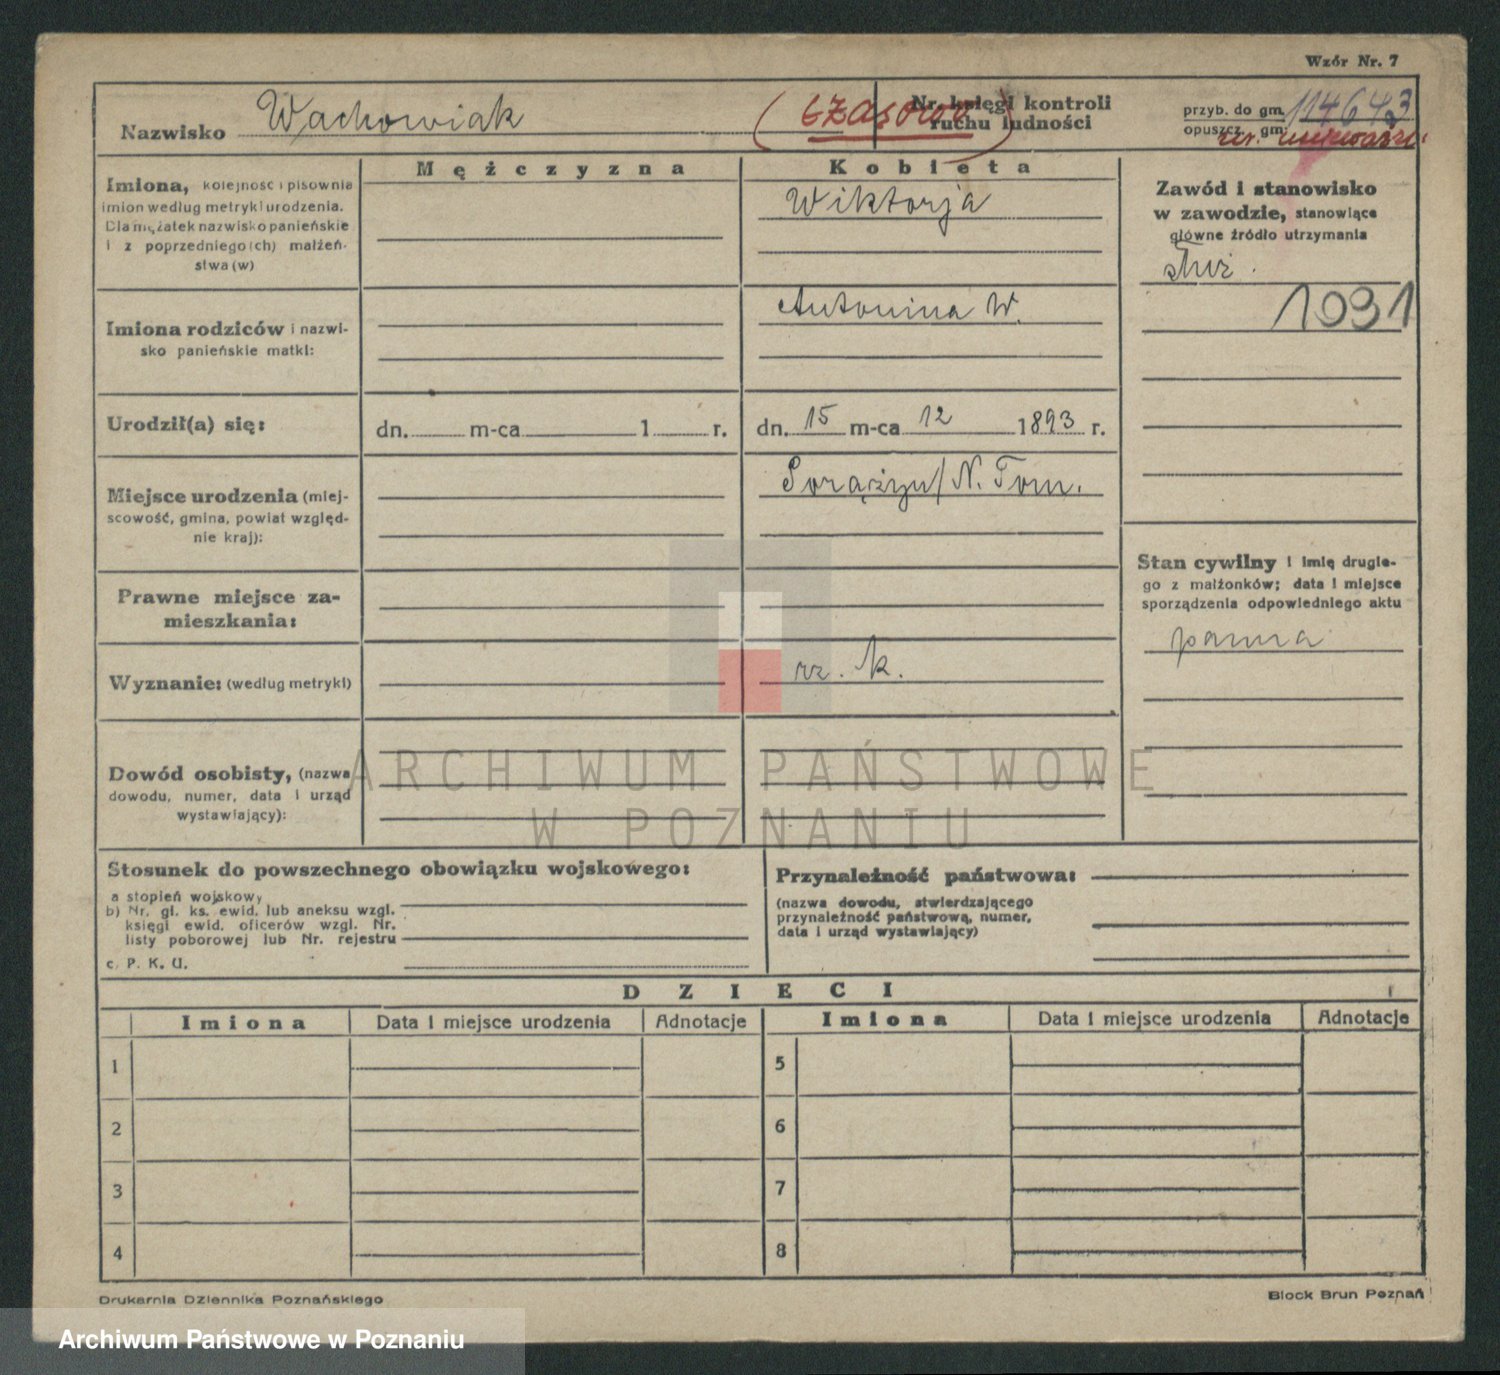 Wzór Nr. 7
Nazwisko Wachowiak
(czasowo)
Nr. księgi kontroli
ruchu ludności
przyb. do gm.
opuszcz. gm:
Mężczyzna
Kobieta
Imiona, kolejność i pisownia
imion według metryki urodzenia.
Dla mężatek nazwisko panieńskie
i z poprzedniego(ch) małżeń-
stwa(w)
Wiktorja
Zawód i stanowisko
w zawodzie, stanowiące
główne źródło utrzymania
służ.
1931
Imiona rodziców i nazwi-
sko panieńskie matki:
Antonina W.
Urodził(a) się:
dn. m-ca 1 r.
dn. 15 m-ca 12 1893 r.
Miejsce urodzenia (miej-
scowość, gmina, powiat względ-
nie kraj):
N. Tom.
Stan cywilny i imię drugie-
go z małżonków; data i miejsce
sporządzenia odpowiedniego aktu
panna
Prawne miejsce za-
mieszkania:
Wyznanie: (według metryki)
rz. k.
Dowód osobisty, (nazwa
dowodu, numer, data i urząd
wystawiający):
ARCHIWUM PAŃSTWOWE
W POZNANIU
Stosunek do powszechnego obowiązku wojskowego:
a stopień wojskowy
b) Nr. gł. ks. ewid. lub aneksu wzgl.
księgi ewid. oficerów wzgl. Nr.
listy poborowej lub Nr. rejestru
c. P. K. U.
Przynależność państwowa:
(nazwa dowodu, stwierdzającego
przynależność państwową, numer,
data i urząd wystawiający)
DZIECI
Imiona Data i miejsce urodzenia Adnotacje Imiona Data i miejsce urodzenia Adnotacje
1 5
2 6
3 7
4 8
Drukarnia Dziennika Poznańskiego
Block Brun Poznań
Archiwum Państwowe w Poznaniu